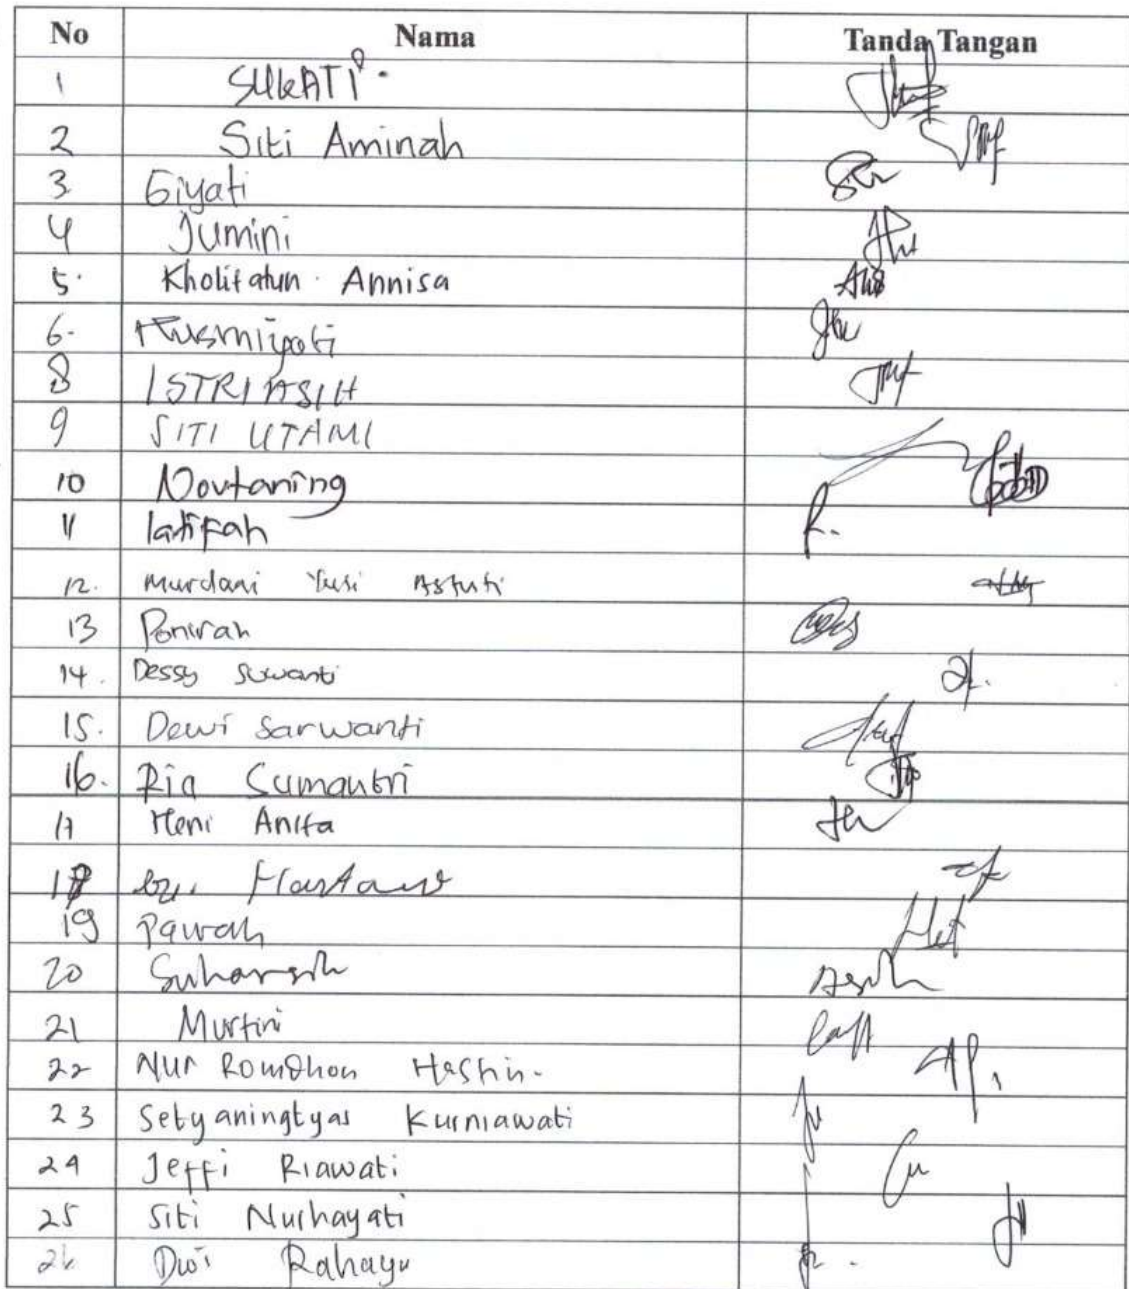 No Nama Tanda Tangan
1 SUKATI.
2 Siti Aminah
3 Giyati
4 Jumini
5. Kholifatun Annisa
6. Kusmiyati
8 ISTRI ASIH
9 SITI UTAMI
10 Novtaning
11 latifah
12. Murdani Yusi Astuti
13 Ponirah
14. Dessy Suwanti
15. Dewi Sarwanti
16. Ria Sumantri
17 Heni Anita
18
19 Pawah
20 Suharsih
21 Murtini
22 NUR ROMDHON
23 Setyaningtyas Kurniawati
24 Jeffi Riawati
25 Siti Nurhayati
26 Dwi Rahayu